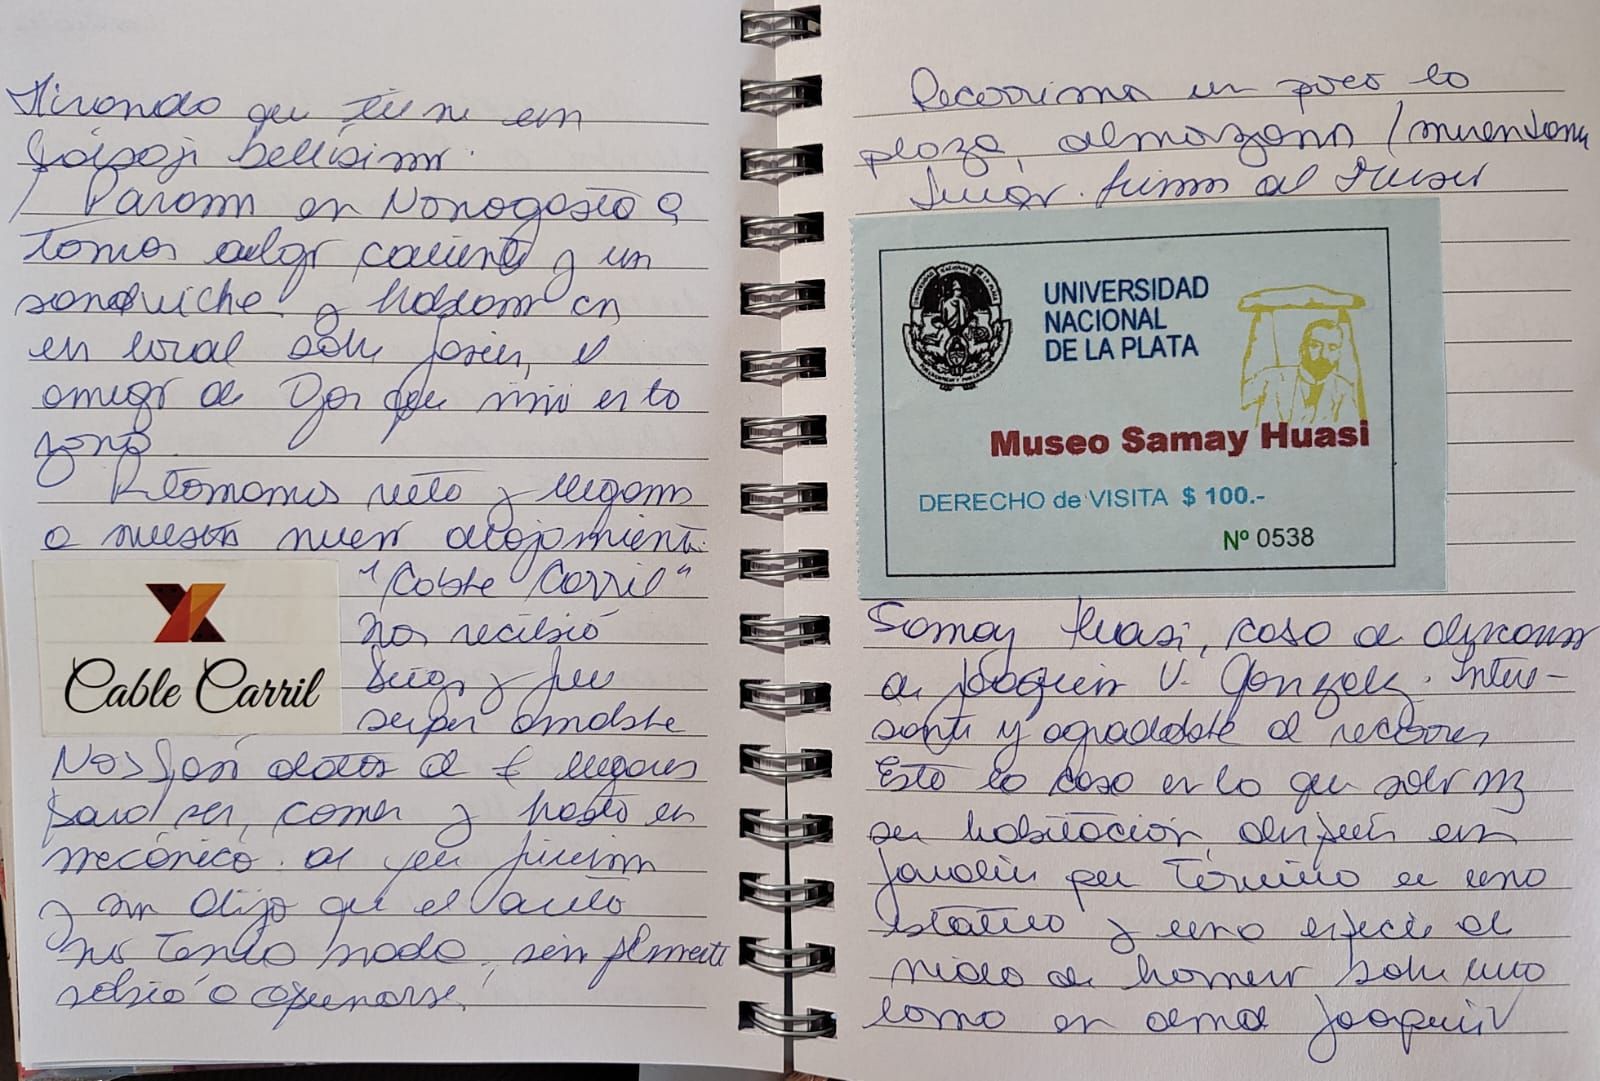 Mirando que tiene un
paisaje bellísimo.
Paramos en Nonogasta a
tomar algo caliente y un
sandwiche y hablamos en
en local sobre Javier, el
amigo de que vivió en la
zona.
Retomamos ruta y llegamos
a nuestro nuevo alojamiento.
"Cable Carril"
Nos recibió
Diego y fue
super amable
Cable Carril
Nos pasó datos de lugares
para ver, comer y hasta un
mecánico al que fuimos
y nos dijo que el auto
no tenía nada, simplemente
debió apunarse.
Recorrimos un poco la
plaza, almorzamos
fuimos al Museo
UNIVERSIDAD
NACIONAL
DE LA PLATA
Museo Samay Huasi
DERECHO de VISITA $ 100.-
Nº 0538
Samay Huasi, casa de descanso
de Joaquin V. Gonzalez. Intere-
sante y agradable de recorrer
Esta la casa en la que
su habitación, después un
jardín que termina en una
estatua y una especie de
nido de hornero sobre una
loma en donde Joaquin V